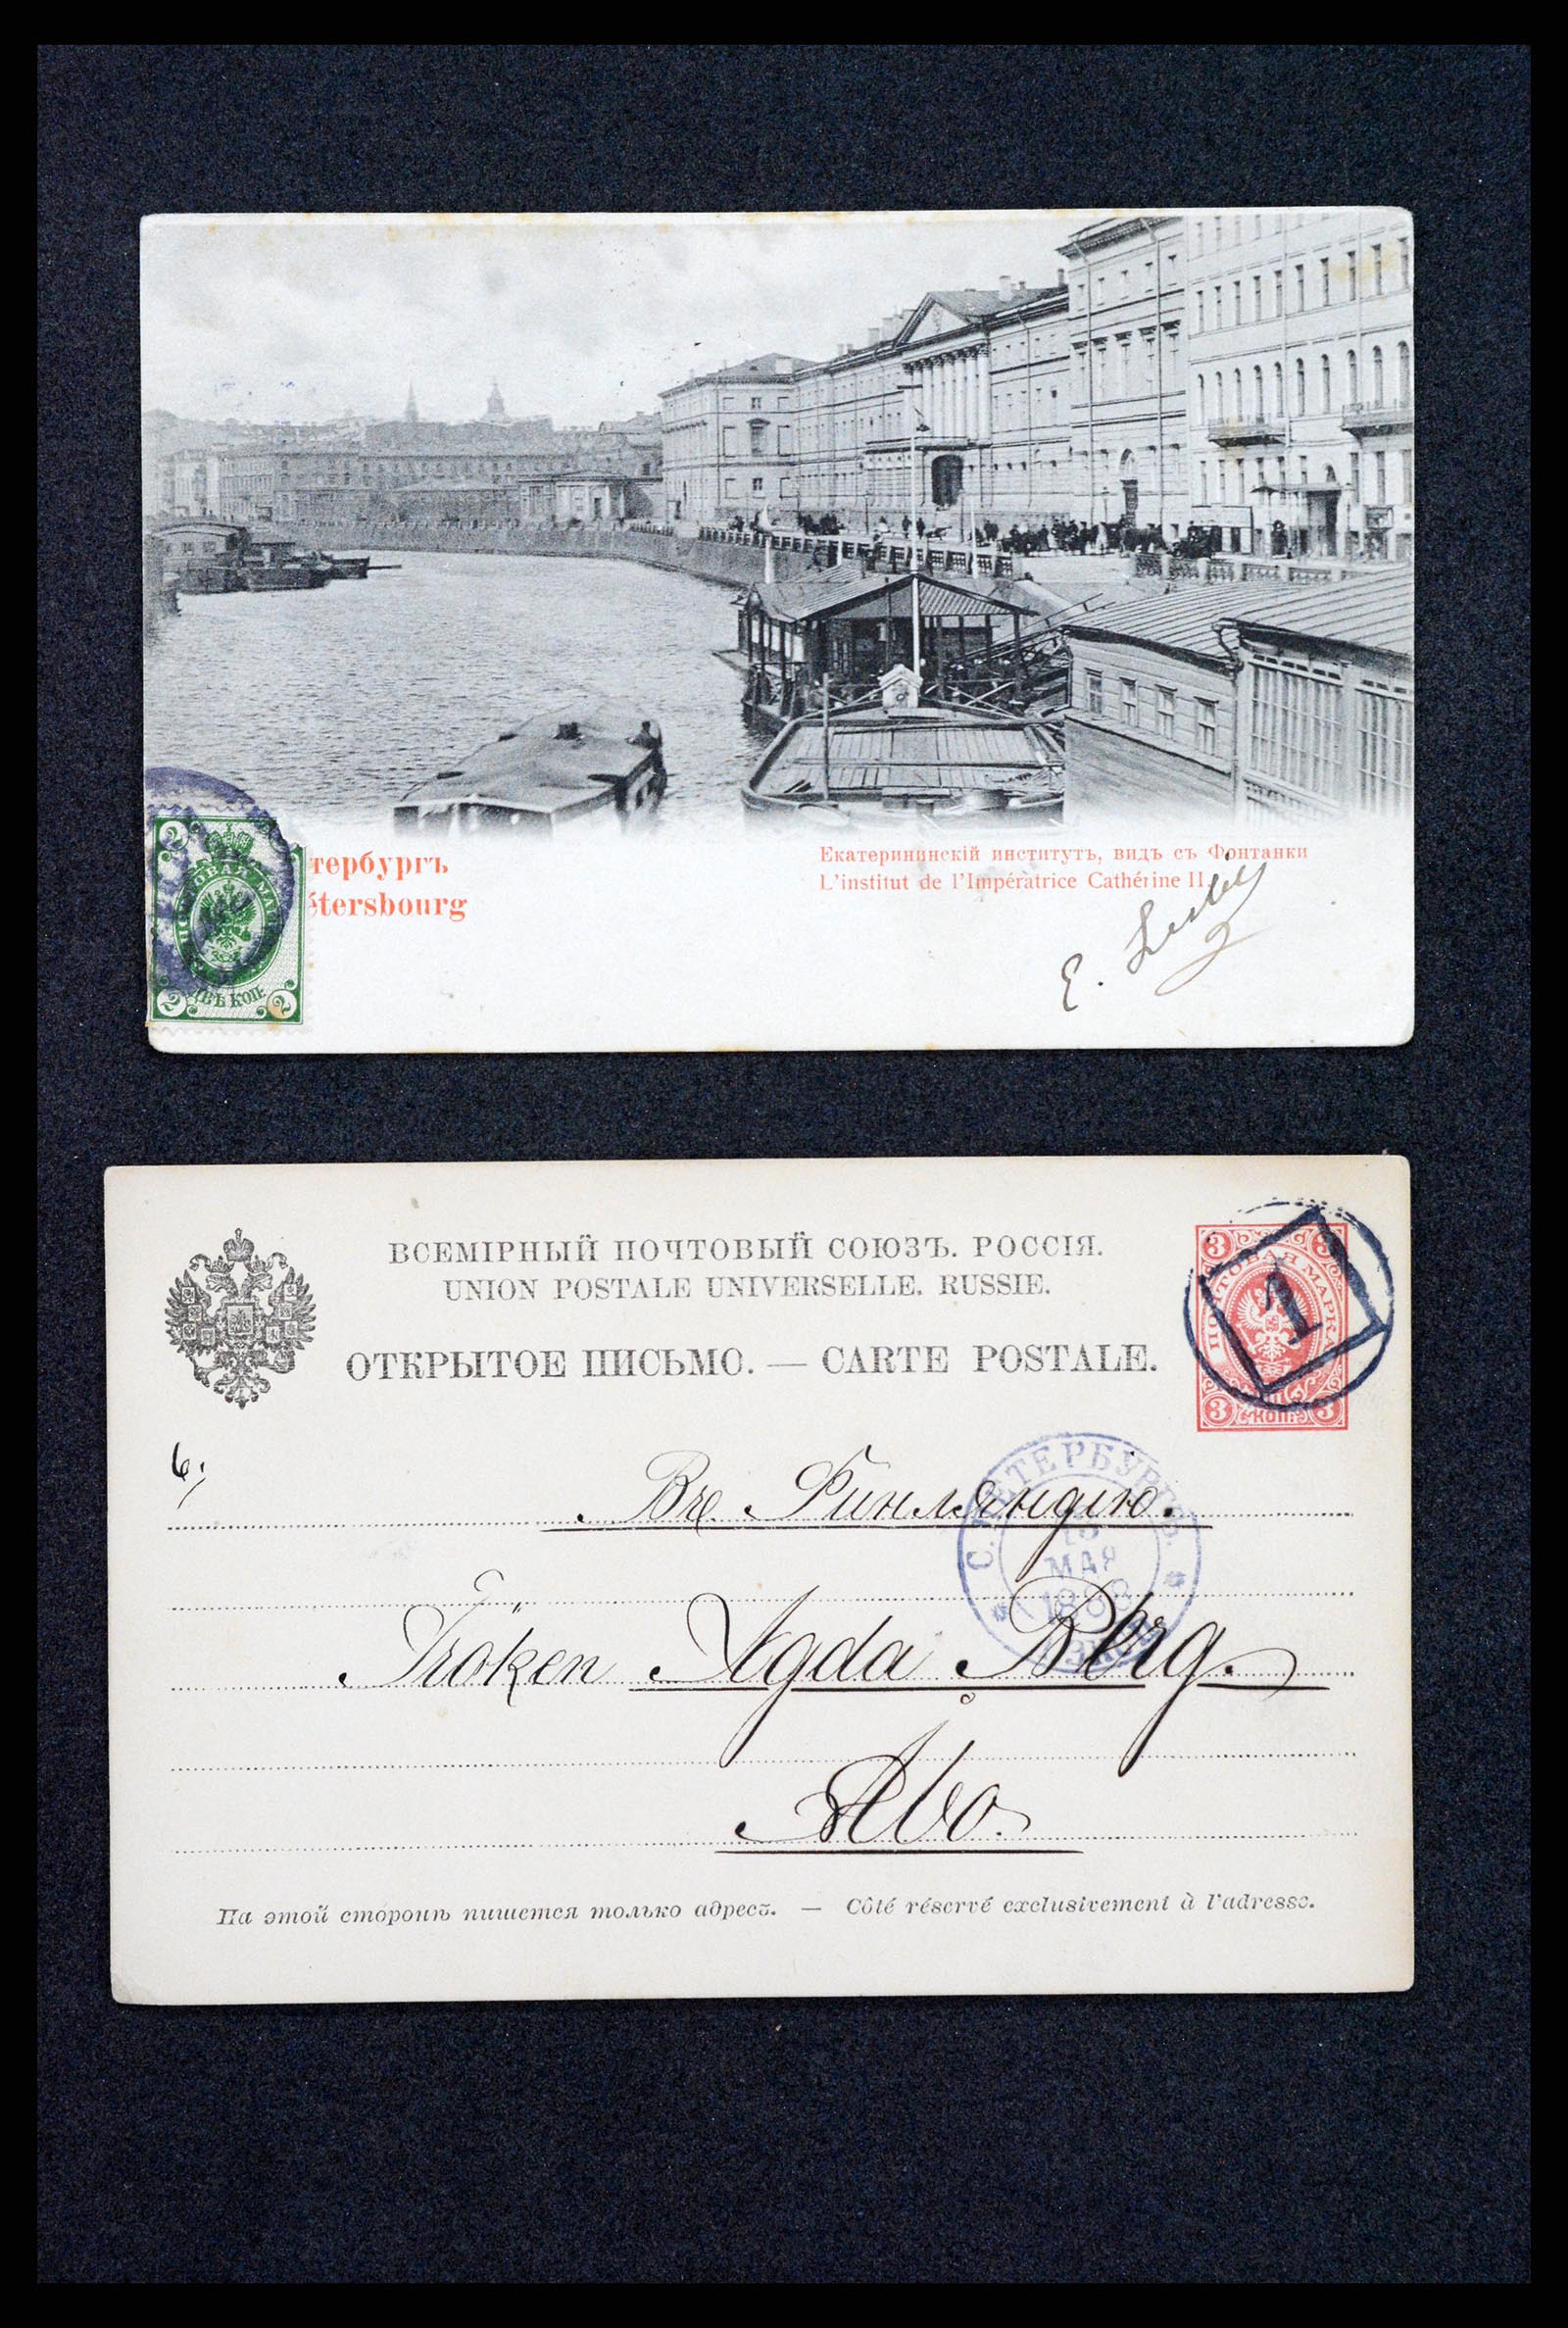 тербургъ
étersbourg
Екатерининскій институтъ, видъ съ Фонтанки
L'institut de l'Impératrice Cathérine II.
E.
2
ПОЧТОВАЯ МАРКА
ДВѢ КОП.
2 2
ВСЕМІРНЫЙ ПОЧТОВЫЙ СОЮЗЪ. РОССІЯ.
UNION POSTALE UNIVERSELLE. RUSSIE.
ОТКРЫТОЕ ПИСЬМО. — CARTE POSTALE.
3 3
ПОЧТОВАЯ МАРКА
1
3 КОП. 3
С. ПЕТЕРБУРГЪ
МАЯ
6;
Въ Финляндію.
Fröken Agda Berg.
Åbo.
На этой сторонѣ пишется только адресъ. — Côté réservé exclusivement à l'adresse.